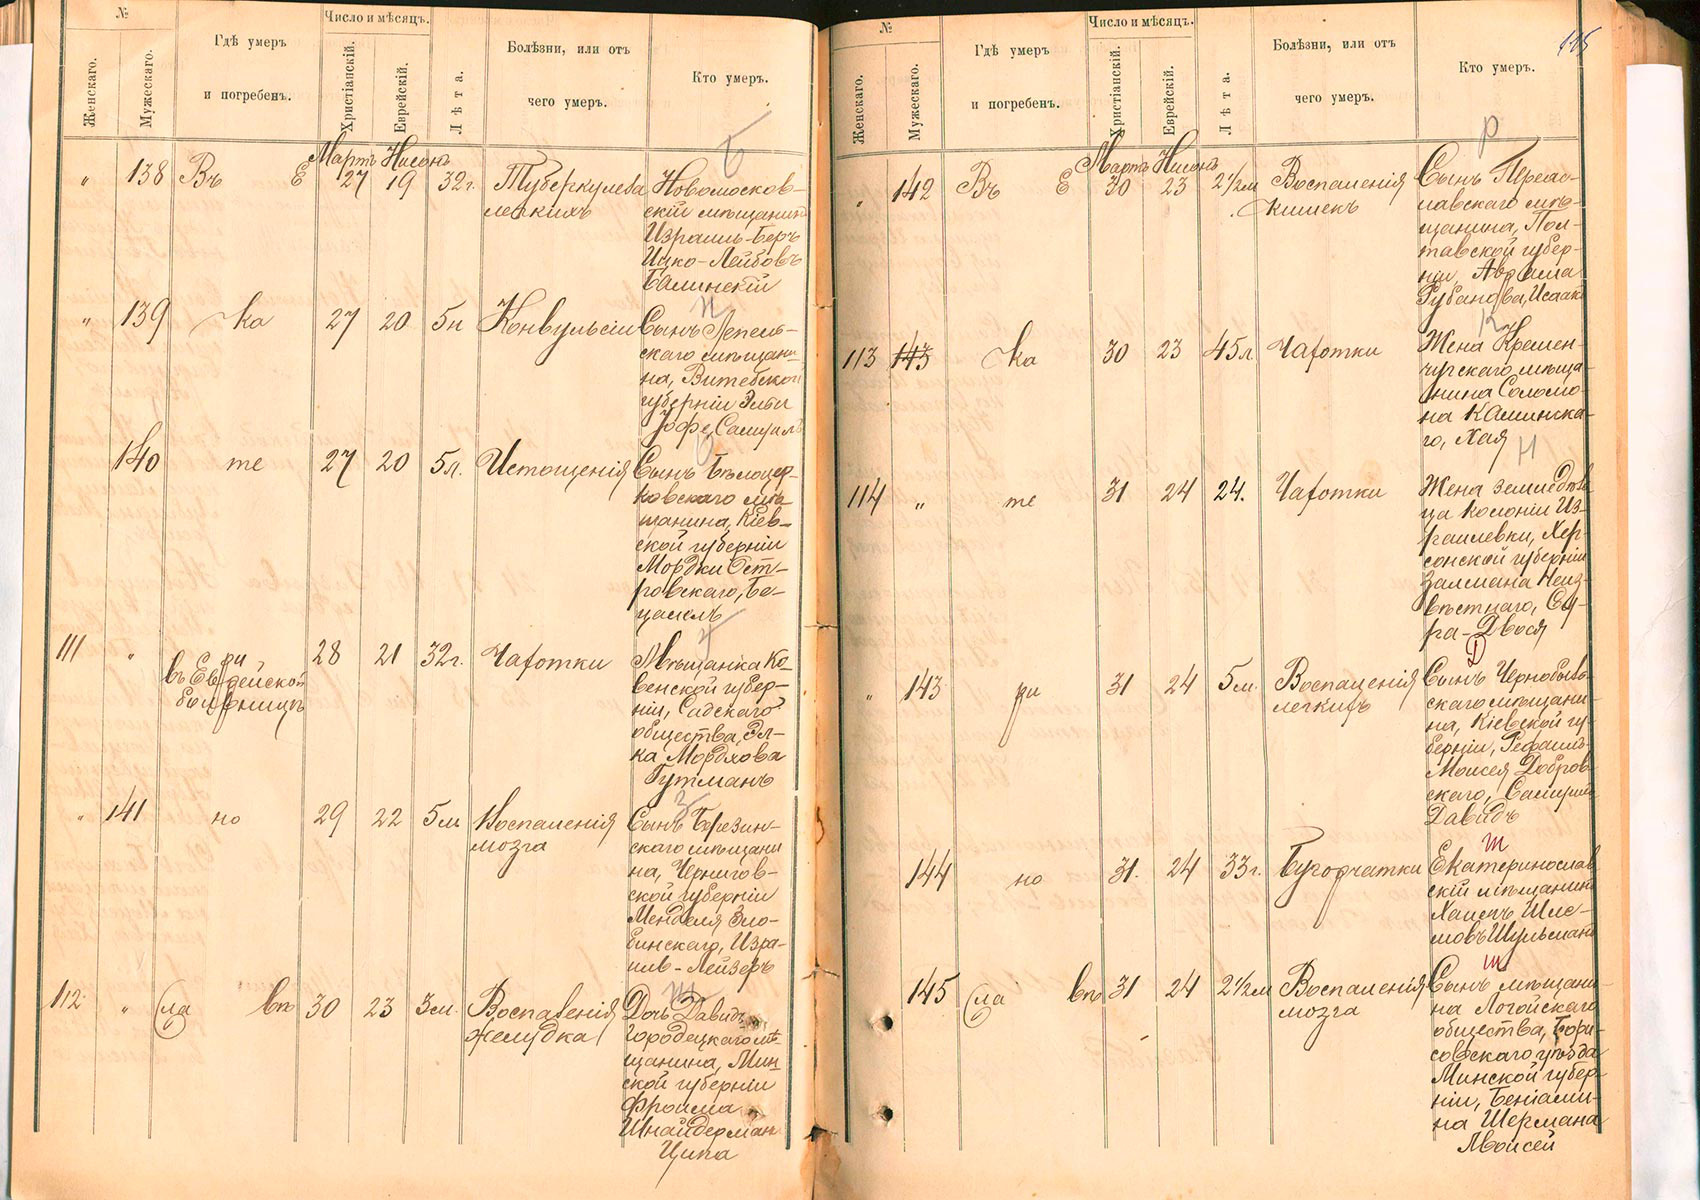 №
Женскаго.
Мужескаго.
Гдѣ умеръ
и погребенъ.
Число и мѣсяцъ.
Христіанскій.
Еврейскій.
Лѣта.
Болѣзни, или отъ
чего умеръ.
Кто умеръ.
Б
Мартъ Нисонъ
" 138 Въ Е 27 19 32г. Туберкулеза
легкихъ
Новомосков-
скій мѣщанинъ
Израиль-Беръ
Ицко-Лейбовъ
Балинскій
" 139 ка 27 20 5н Конвульсіи
Сынъ Лепель-
скаго мѣщани-
на, Витебской
губерніи Эльи
Іоффе, Самуилъ
140 те 27 20 5л. Истощенія
О
Сынъ Бѣлоцер-
ковскаго мѣ-
щанина, Кіев-
ской губерніи
Мордки Ост-
ровскаго, Бе-
цалелъ
111 " ри 28 21 32г. Чахотки
въ Еврейской
больницѣ
Мѣщанка Ко-
венской губер-
ніи, Садскаго
общества, Эл-
ка Мордхова
Гутманъ
" 141 но 29 22 5м Воспаленія
мозга
З
Сынъ Березин-
скаго мѣщани
на, Чернигов-
ской губерніи
Менделя Зло-
бинскаго, Изра-
иль-Лейзеръ
112 " сла въ 30 23 3м. Воспаленія
желудка
Ш
Дочь Давидъ
городецкаго мѣ
щанина, Мин
ской губерніи
Фроима
Шнайдерман
Ципа
115
№
Женскаго.
Мужескаго.
Гдѣ умеръ
и погребенъ.
Число и мѣсяцъ.
Христіанскій.
Еврейскій.
Лѣта.
Болѣзни, или отъ
чего умеръ.
Кто умеръ.
Р
Мартъ Нисонъ
" 142 Въ Е 30 23 2½м Воспаленія
кишекъ
Сынъ Переяс-
лавскаго мѣ-
щанина, Пол-
тавской губер-
ніи, Авраама
Рубанова, Исаакъ
113 143 ка 30 23 45л. Чахотки
К
Жена Кремен-
чугскаго мѣща-
нина Соломо-
на Каминска-
го, Хая
114 " те 31 24 24. Чахотки
Н
Жена земледѣль
ца Колоніи Из-
раилевки, Хер-
сонской губерніи
Залмана Неиз-
вѣстнаго, Са-
ра-Двося
" 143 ри 31 24 5м. Воспаленія
легкихъ
Д
Сынъ Чернобыль
скаго мѣщани-
на, Кіевской гу-
берніи, Рефаиль-
Моисея Добров
скаго, Самуилъ
Давидъ
144 но 31. 24 33г. Бугорчатки
Ш
Екатеринослав
скій мѣщанинъ
Хаимъ Шле-
мовъ Шульманъ
145 сла въ 31 24 2½м Воспаленія
мозга
Ш
Сынъ мѣщани-
на Логойскаго
общества, Бори-
совскаго уѣзда
Минской губер-
ніи, Беніами-
на Шермана
Моисей